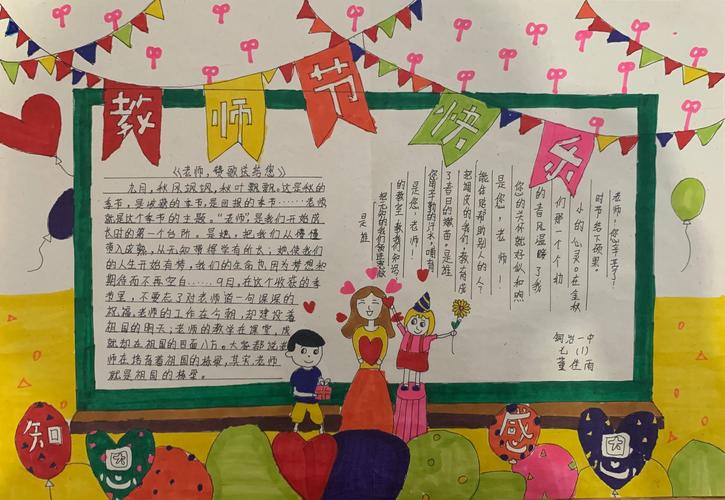 教师节快乐
《老师，赞歌送给您》
九月，秋风飒飒，秋叶飘飘，这是秋的
季节，是收获的季节，是回报的季节……老师
就是这个季节的主题。“老师”是我们开始成
长时的第一个台阶。是她，把我们从懵懂
带入成熟，从无知带得学有所长；她使我们
的人生开始有梦，我们的生命也因为梦想和
期待而不再空白……9月，在这个收获的季
节里，不要忘了对老师道一句深深的
祝福。老师的工作在今朝，却建设着
祖国的明天；老师的教学在课堂，成
就却在祖国的四面八方。大家都说老
师在培育着祖国的栋梁，其实，老师
就是祖国的栋梁。
老师！您辛苦了！
时节结下硕果。
小的心灵，在金秋
们那一个个幼
的春风温暖了我
您的关怀就好似和煦
是您，老师！
能体贴帮助别人的人？
把调皮的我们，教育成
了春日的嫩苗。是谁
您用辛勤的汗水，哺育
是您，老师！
的教室，教我们知识，
是谁
七（1）
知
感
恩
恩